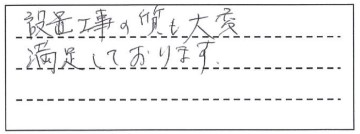 設置工事の質も大変
満足しております.